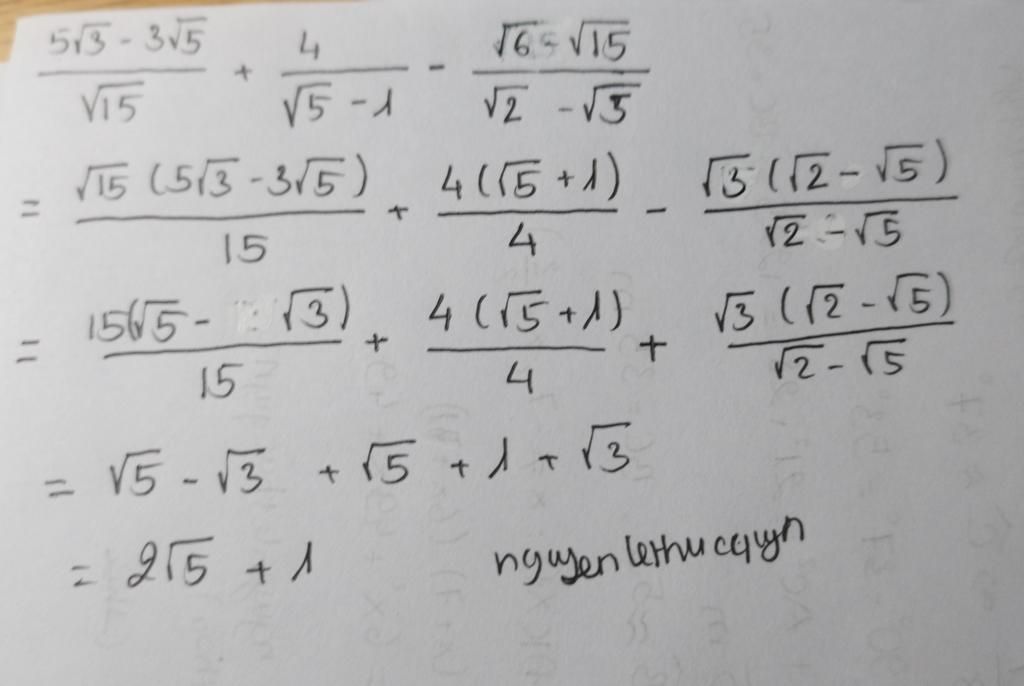 (5√3 - 3√5)/√15 + 4/(√5 - 1) - (√6 - √15)/(√2 - √5)
= √15 (5√3 - 3√5)/15 + 4(√5 + 1)/4 - √3 (√2 - √5)/(√2 - √5)
= 15(√5 - √3)/15 + 4(√5 + 1)/4 + √3 (√2 - √5)/(√2 - √5)
= √5 - √3 + √5 + 1 + √3
= 2√5 + 1 nguyenlethucquyn